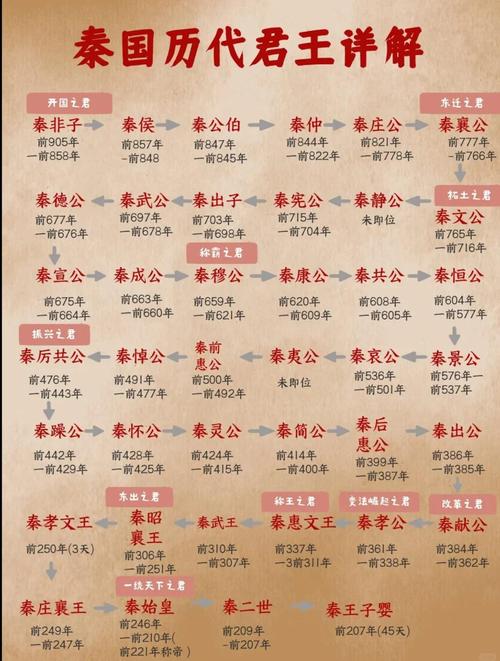 秦国历代君王详解
开国之君
东迁之君
秦非子
秦侯
秦公伯
秦仲
秦庄公
秦襄公
前905年
一前858年
前857年
-前848
前847年
一前845年
前844年
一前822年
前821年
一前778年
前777年
-前766年
拓土之君
秦德公
秦武公
秦出子
秦宪公
秦静公
秦文公
前677年
一前676年
前697年
一前678年
前703年
一前698年
前715年
一前704年
未即位
前765年
一前716年
称霸之君
秦宣公
秦成公
秦穆公
秦康公
秦共公
秦恒公
前675年
一前664年
前663年
一前660年
前659年
一前621年
前620年
一前609年
前608年
一前605年
前604年
一前577年
振兴之君
秦厉共公
秦悼公
秦前
惠公
秦夷公
秦哀公
秦景公
前476年
一前443年
前491年
一前477年
前500年
一前492年
未即位
前536年
一前501年
前576年一
前537年
秦躁公
秦怀公
秦灵公
秦简公
秦后
惠公
秦出公
前442年
一前429年
前428年
一前425年
前424年
一前415年
前414年
一前400年
前399年
一前387年
前386年
一前385年
东出之君
称王之君
变法崛起之君
改革之君
秦孝文王
秦昭
襄王
秦武王
秦惠文王
秦孝公
秦献公
前250年(3天)
前306年
一前251年
前310年
一前307年
前337年
一3前311年
前361年
一前338年
前384年
一前362年
一统天下之君
秦庄襄王
秦始皇
秦二世
秦王子婴
前249年
一前247年
前246年
一前210年(
前221年称帝)
前209年
-前207年
前207年(45天)